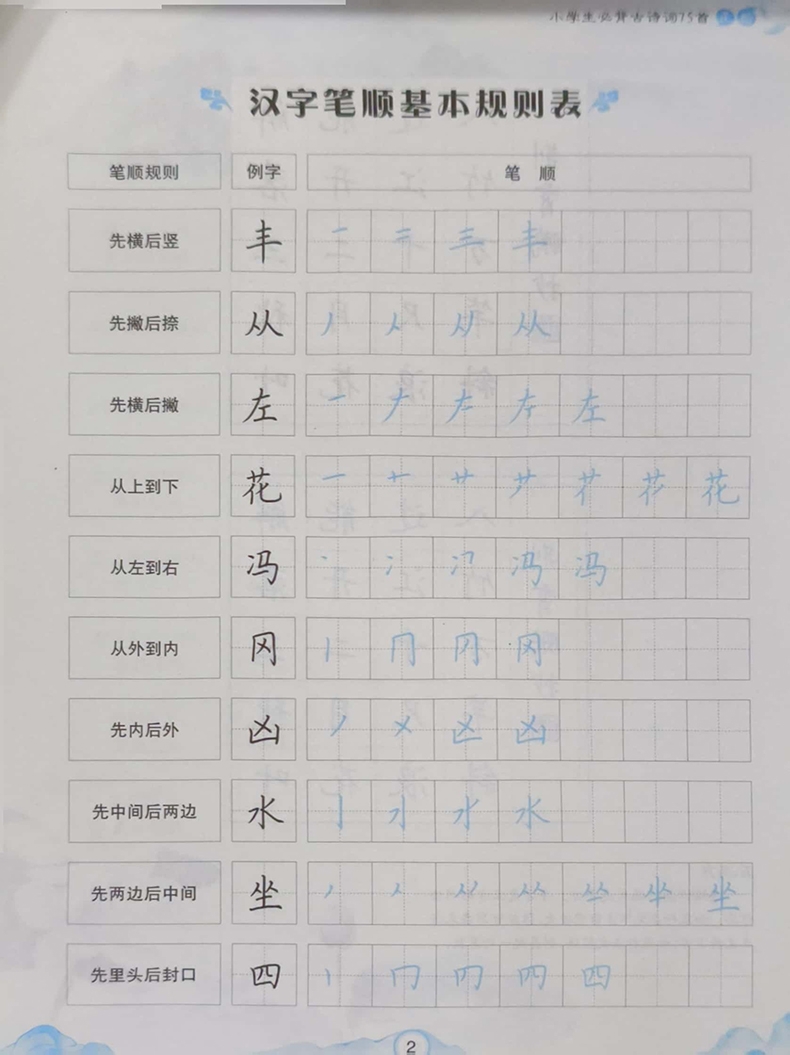 小学生必背古诗词75首
汉字笔顺基本规则表
笔顺规则 例字 笔 顺
先横后竖 丰 一 二 三 丰
先撇后捺 从 丿 人 从
先横后撇 左 一 𠂇 左
从上到下 花 一 十 艹 花
从左到右 冯 丶 冫 冯 冯
从外到内 冈 丨 冂 冈 冈
先内后外 凶 丿 乂 凶 凶
先中间后两边 水 亅 水 水
先两边后中间 坐 丿 人 从 坐
先里头后封口 四 丨 冂 四
2